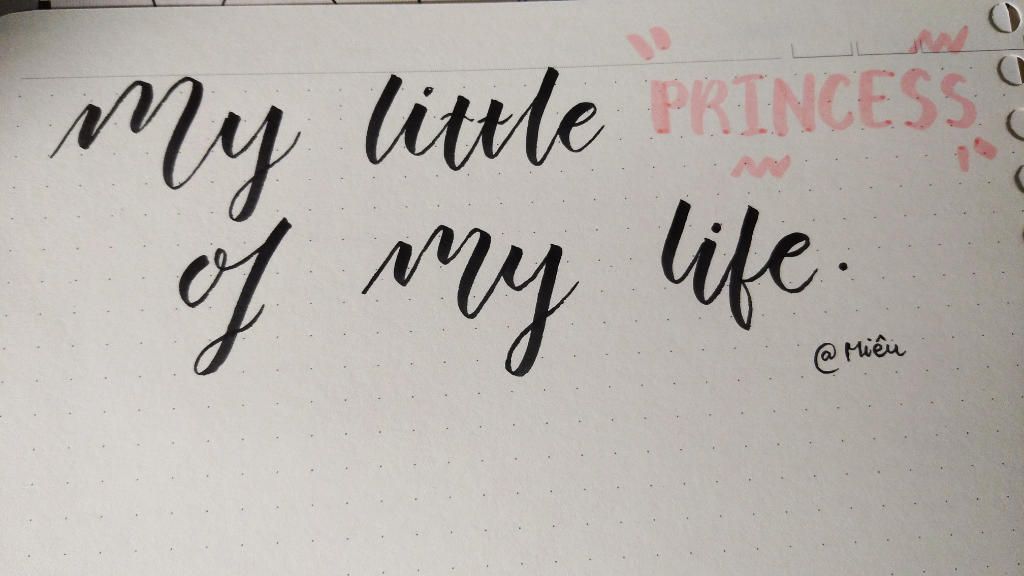 My little PRINCESS
of my life.
@Miêu